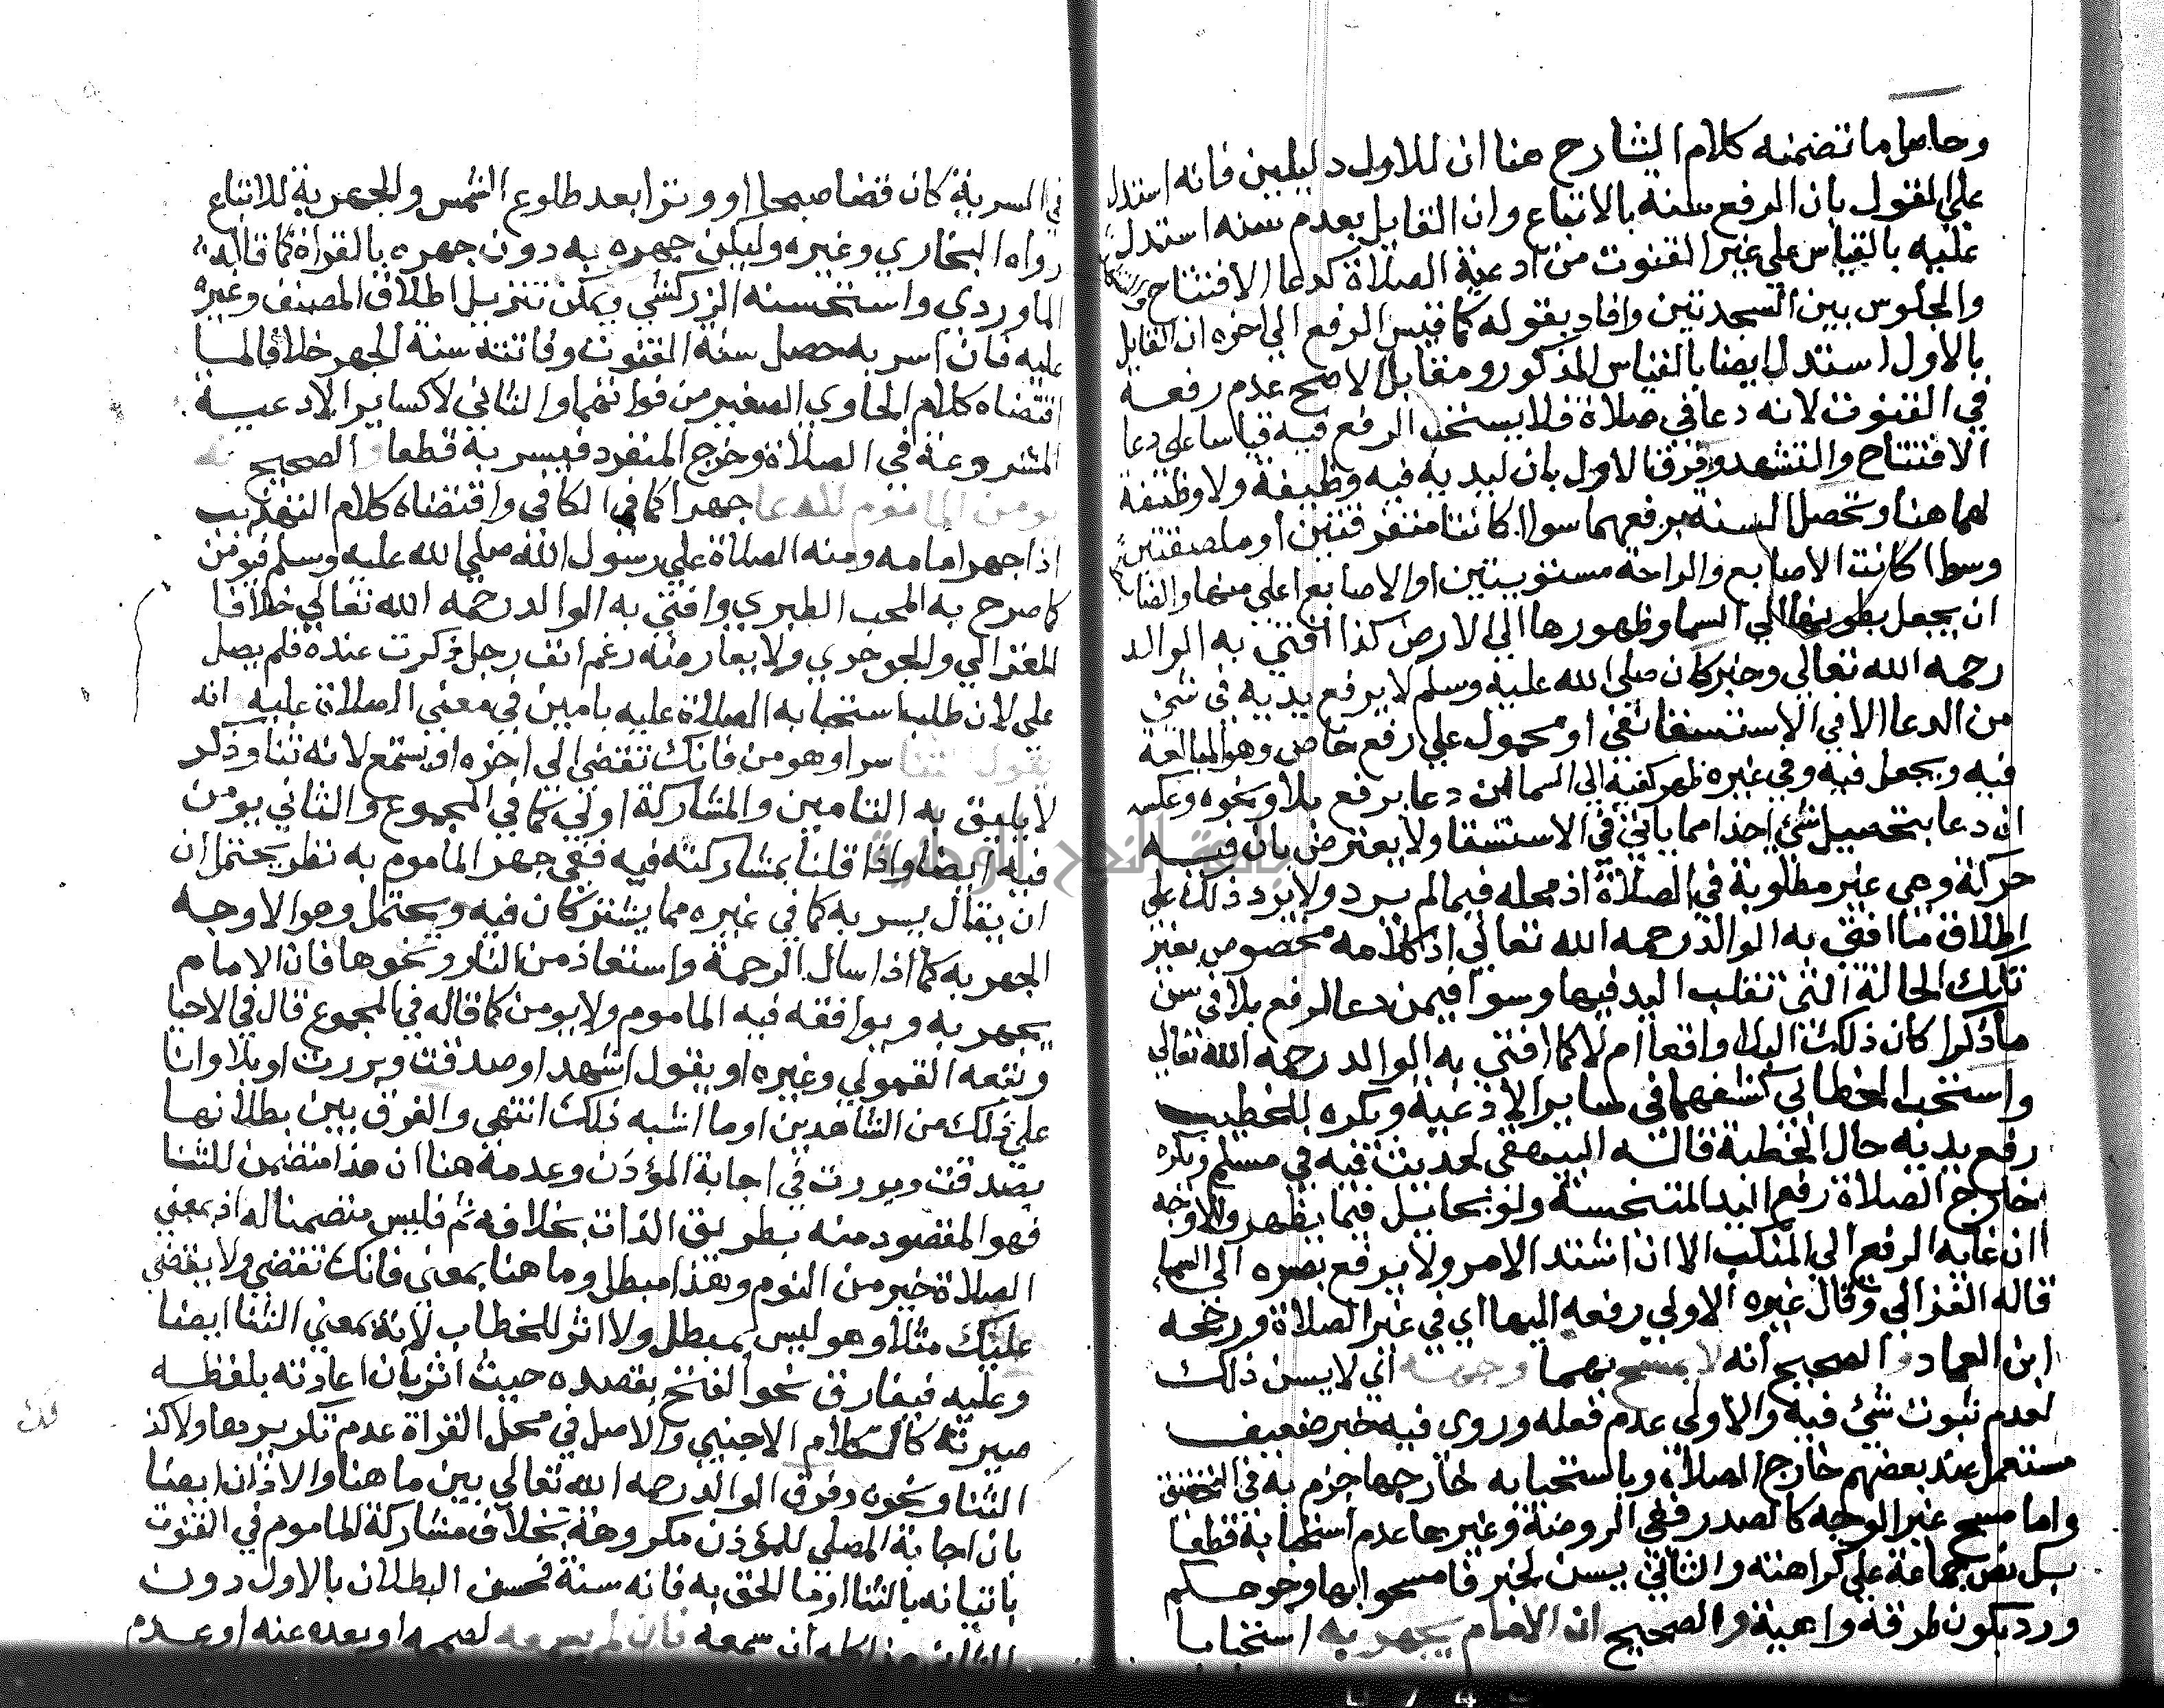 وحاصل ما تضمنه كلام الشارح هنا ان للاول دليلين فانه استدل
علي القول بان الرفع سنة بالاتباع وان القايل بعدم سنه استدل
عليه بالقياس علي غير القنوت من ادعية الصلاة كدعا الافتتاح
والجلوس بين السجدتين وافاد بقوله كما قيس الرفع الي اخره ان القايل
بالاول استدل ايضا بالقياس المذكور ومقابل الاصح عدم رفعه
في القنوت لانه دعا في صلاة فلا يستحب الرفع فيه قياسا على دعا
الافتتاح والتشهد وفرق الاول بان ليديه فيه وظيفة ولا وظيفة
لهما هنا وتحصل السنة برفعهما سوا كانتا متفرقتين او ملصقتين
وسوا كانت الاصابع والراحة مستويتين او الاصابع اعلي منها
ان يجعل بطونهما الي السما وظهورها الي الارض كذا افتي به الوالد
رحمه الله تعالي وخبر كان صلي الله عليه وسلم لا يرفع يديه في شئ
من الدعا الا في الاستسقا نفي او محمول علي رفع خاص وهو المبالغة
فيه ويجعل فيه وفي غيره ظهر كفيه الي السما ان دعا برفع بلا ونحوه وعكسه
ان دعا بتحصيل شئ اخذا مما ياتي في الاستسقا ولا يعترض بان فيه
حركة وهي غير مطلوبة في الصلاة اذ محله فيما لم يرد ولا يرد ذلك على
اطلاق ما افتي به الوالد رحمه الله تعالي اذ كلامه مخصوص بغير
تلك الحالة التي تقلب اليد فيها وسوا فيمن دعا لرفع بلا في سن
ما ذكر اكان ذلك البلا واقعا ام لا كما افتي به الوالد رحمه الله تعالي
واستحب الخطابي كشفهما في ساير الادعية ويكره للخطيب
رفع يديه حال الخطبة قاله البيهقي لحديث فيه في مسلم ويكره
خارج الصلاة رفع اليد المتنجسة ولو بحايل فيما يظهر والاوجه
ان غاية الرفع الي المنكب الا ان اشتد الامر ولا يرفع بصره الي السما
قاله الغزالي وقال غيره الاولي رفعه اليها اي في غير الصلاة ورجحه
ابن العماد و الصحيح انه لا يمسح بهما وجهه اي لا يسن ذلك
لعدم ثبوت شئ فيه والاولى عدم فعله وروى فيه خبر ضعيف
مستعمل عند بعضهم خارج الصلاة وباستحبابه خارجها جزم به في التحقيق
واما مسح غير الوجه كالصدر ففي الروضة وغيرها عدم استحبابه قطعا
بل نص جماعة علي كراهته والثاني يسن لخبر فامسحوا بها وجوهكم
ورد بكون طرقه واهية و الصحيح ان الامام يجهر به استحبابا
في السرية كان قضا صبحا او وترا بعد طلوع الشمس والجهرية للاتباع
رواه البخاري وغيره وليكن جهره به دون جهره بالقراة كما قاله
الماوردي واستحسنه الزركشي ويمكن تنزيل اطلاق المصنف وغيره
عليه فان اسر به حصل سنة القنوت وفاتته سنة الجهر خلافا لما
اقتضاه كلام الحاوي الصغير من فواتهما والثاني لا كساير الادعية
المشروعة في الصلاة وخرج المنفرد فيسر به قطعا و الصحيح انه
يومن الماموم للدعا جهرا كما في الكافي واقتضاه كلام التهذيب
اذا جهر امامه ومنه الصلاة علي رسول الله صلي الله عليه وسلم فيومن
كما صرح به المحب الطبري وافتي به الوالد رحمه الله تعالي خلافا
للغزالي وللجوجري ولا يعارضه رغم انف رجل ذكرت عنده فلم يصل
علي لان طلب استحبابه الصلاة عليه بامين في معني الصلاة عليه و انه
يقول الثنا سرا وهو من فانك تقضي الي اخره او يستمع لانه ثنا وذكر
لا يليق به التامين والمشاركة اولي كما في المجموع والثاني يومن
فيه ايضا واذا قلنا بمشاركته فيه ففي جهر الماموم به نظر يحتمل ان
ان يقال يسر به كما في غيره مما يشتركان فيه ويحتمل وهو الاوجه
الجهر به كما اذا سال الرحمة واستعاذ من النار ونحوها فان الامام
يجهر به ويوافقه فيه الماموم ولا يومن كما قاله في المجموع قال في الاحيا
وتبعه القمولي وغيره او يقول اشهد او صدقت وبررت او بلا وانا
علي ذلك من الشاهدين او ما اشبه ذلك انتهي والفرق بين بطلانها
بصدقت وبررت في اجابة المؤذن وعدمه هنا ان هذا متضمن للثنا
فهو المقصود منه بطريق الذات بخلافه ثم فليس متضمنا له اذ بمعني
الصلاة خير من النوم وهذا مبطل وما هنا بمعنى فانك تقضي ولا يقضي
عليك مثلا وهو ليس بمبطل ولا اثر للخطاب لانه بمعني الثنا ايضا
وعليه فيفارق نحو الفتح بقصده حيث اثر بان اعادته بلفظه
صيرته كالكلام الاجنبي والاصل في محل القراة عدم تكريرها ولا كذ
الثنا ونحوه وفرق الوالد رحمه الله تعالي بين ما هنا والاذان ايضا
بان اجابة المصلي للمؤذن مكروهة بخلاف مشاركة الماموم في القنوت
باتيانه بالثنا او ما الحق به فانه سنة فحسن البطلان بالاول دون
الثاني هذا كله ان سمعه فان لم يسمعه لصمم او بعده عنه او عدم